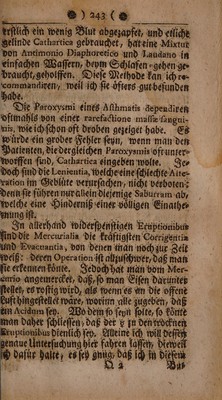 ) 243 (
erstlich ein wenig Blut abgezapfet, und etliche
gelinde Cathartica gebrauchet, hat eine Mixtur
von Antimonio Diaphoretico und Laudano in
einfachen Wassern, beym Schlafen-gehen ge-
braucht, geholffen. Diese Methode kan ich re-
commandiren, weil ich sie öfters gut befunden
habe.
Die Paroxysmi eines Asthmatis dependiren
oftmahls von einer rarefactione massæ sangui-
nis, wie ich schon oft droben gezeiget habe. Es
würde ein grober Fehler seyn, wenn man den
Patienten, die dergleichen Paroxysmis oft unter-
worffen sind, Cathartica eingeben wolte. Je-
doch sind die Lenientia, welche eine schlechte Alte-
ration im Geblüte verursachen, nicht verboten;
denn sie führen nur allein diejenige Saburram ab,
welche eine Hinderniß einer völligen Einathe-
mung ist.
In allerhand widerspenstigen Eruptionibus
sind die Mercurialia die kräftigsten Corrigentia
und Evacuantia, von denen man noch zur Zeit
weiß: deren Operation ist allzuschwer, daß man
sie erkennen könte. Jedoch hat man vom Mer-
curio angemercket, daß, so man Eisen darunter
stellet, es rostig wird, als wenn es an die offene
Luft hingestellet wäre, worinn alle zugeben, daß
ein Acidum sey. Wo dem so seyn solte, so könte
man daher schliessen, daß der ☿ zu den trocknen
Eruptionibus dienlich sey. Alleine ich will dessen
genaue Untersuchung hier fahren lassen, dieweil
ich dafür halte, es sey gnug, daß ich in diesem
Q 2